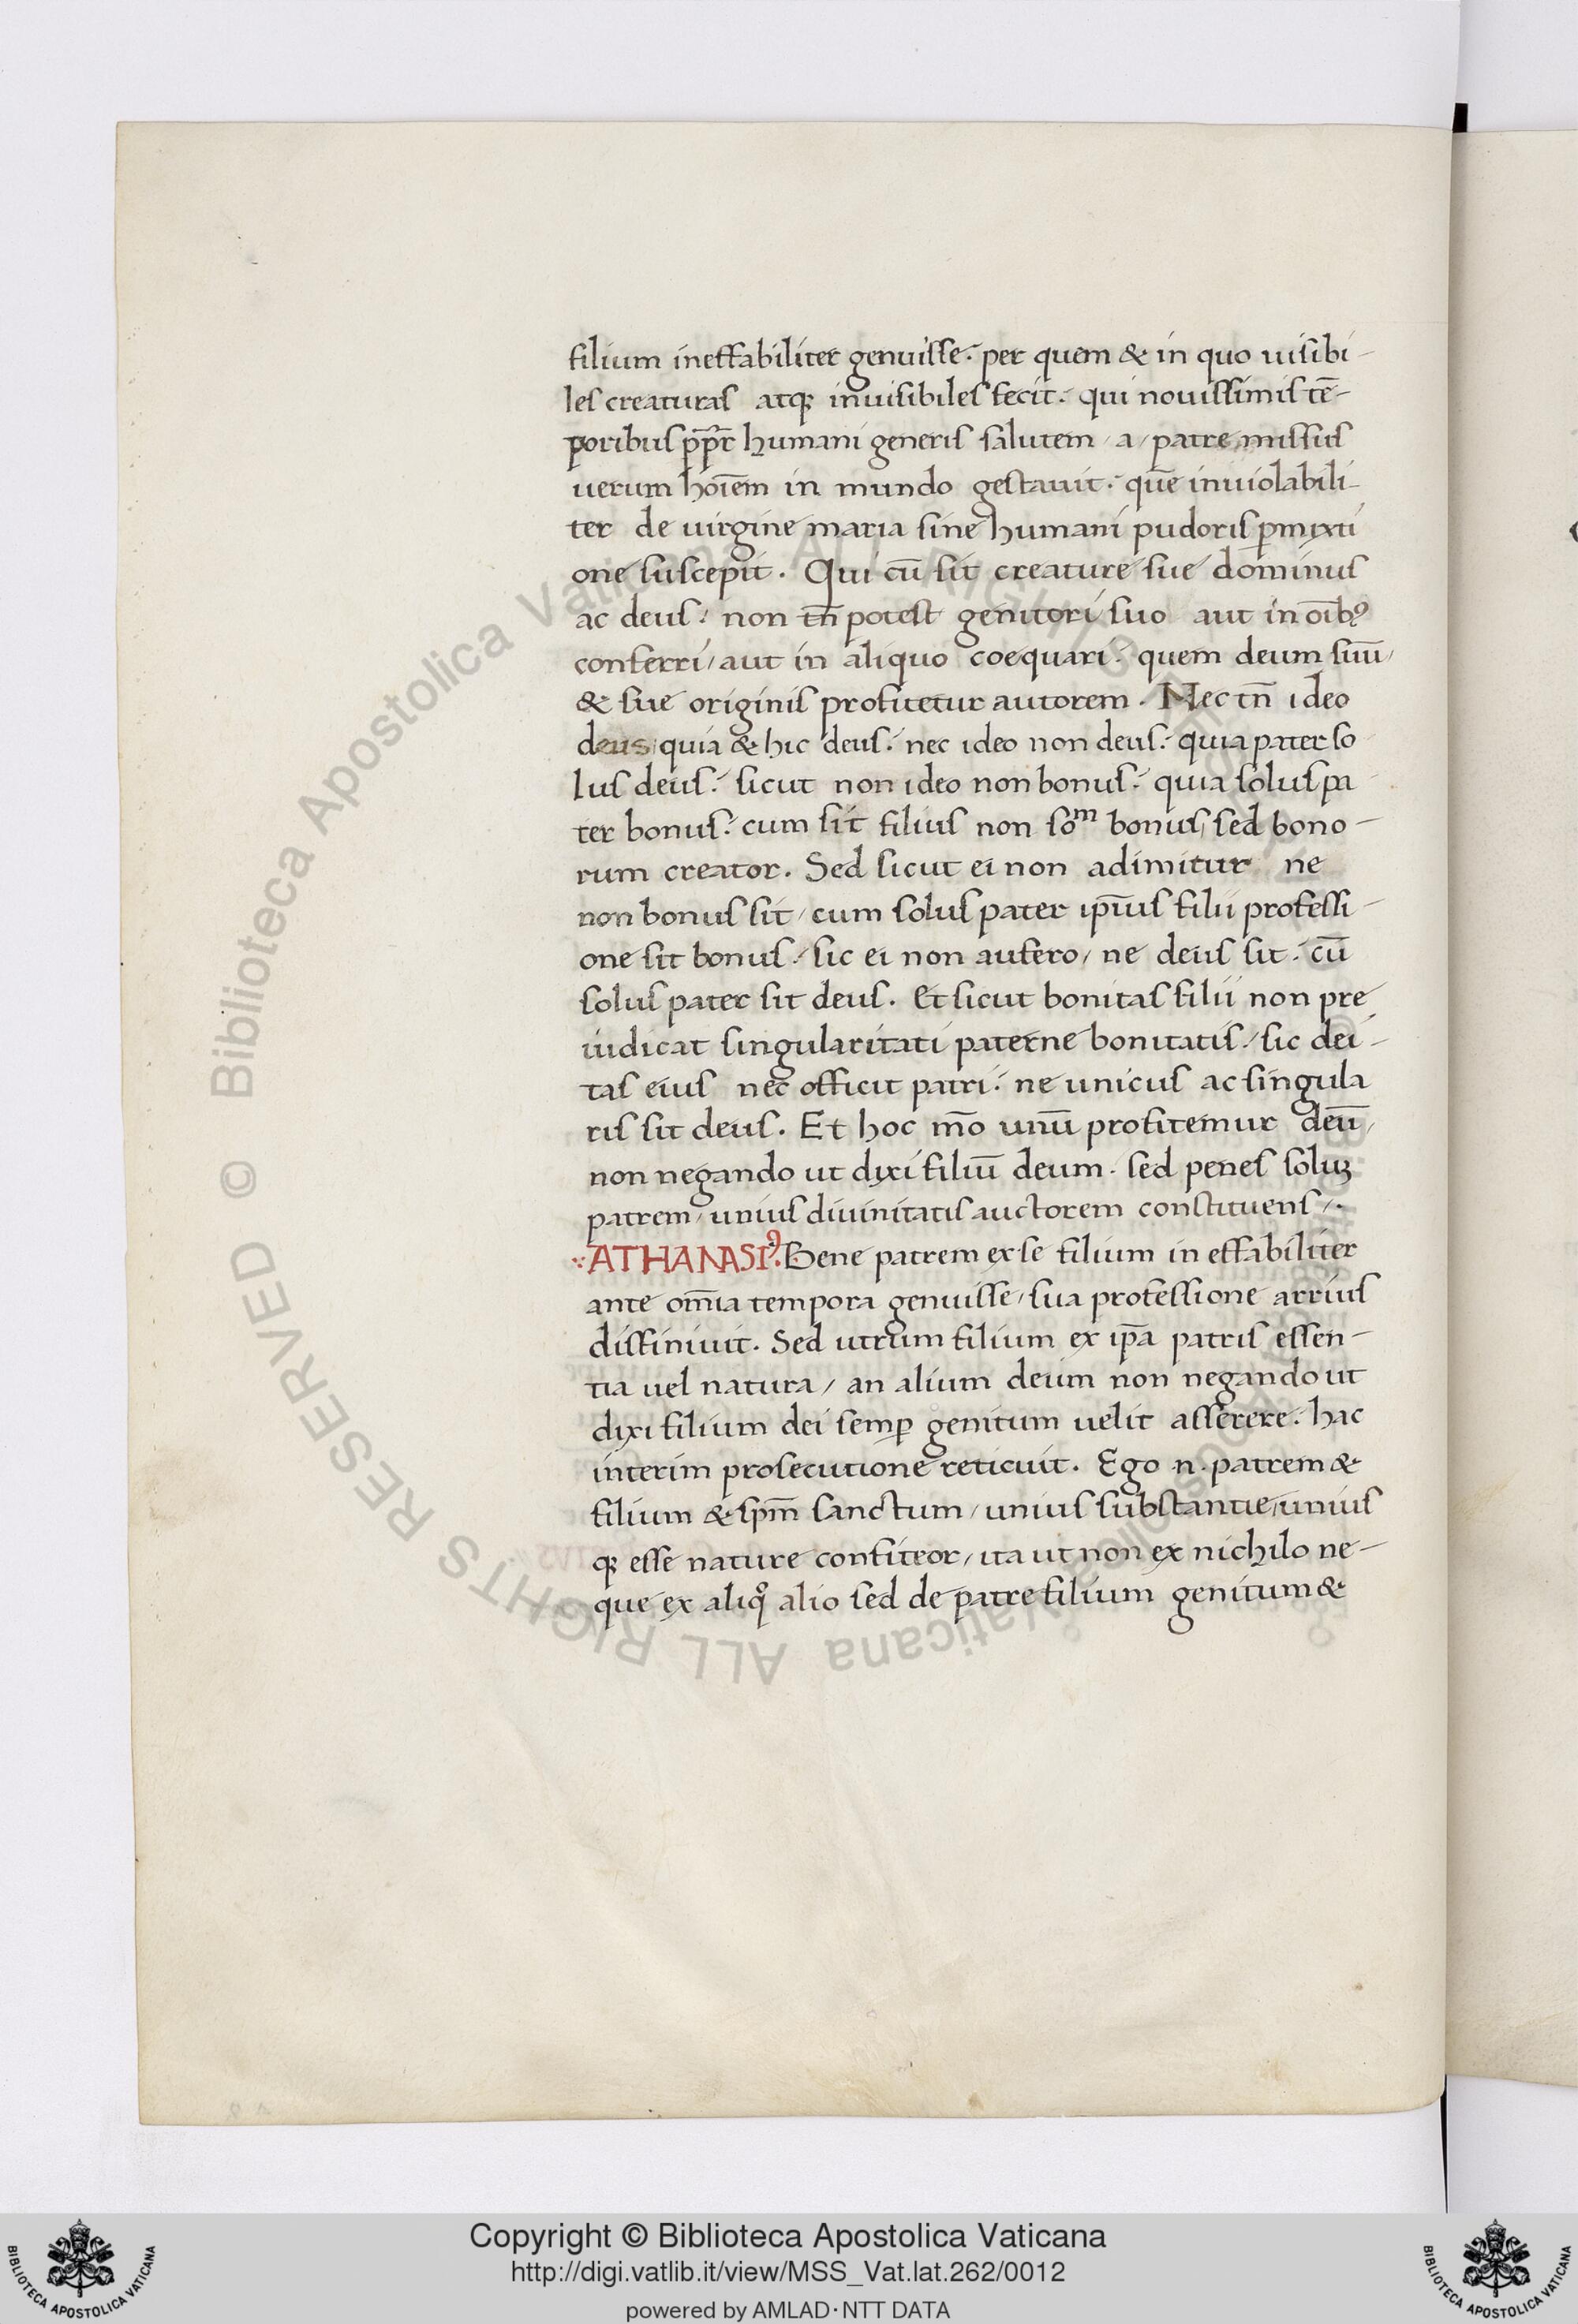 filium ineffabiliter genuisse. per quem & in quo uisibi-
les creaturas atq; inuisibiles fecit. qui nouissimis tē-
poribus ꝓpt̄ humani generis salutem / a / patre missus
uerum hoīem in mundo gestauit. quē inuiolabili-
ter de uirgine maria sine humani pudoris ꝑmixti
one suscepit. Qui cū sit creature sue dominus
ac deus: non tn̄ potest genitori suo aut in oīb9
conferri / aut in aliquo coequari. quem deum suū /
& sue originis profitetur autorem. Nec tn̄ ideo
deus / quia & hic deus: nec ideo non deus: quia pater so
lus deus: sicut non ideo non bonus: quia solus pa
ter bonus: cum sit filius non soᵐ bonus / sed bono-
rum creator. Sed sicut ei non adimitur ne
non bonus sit / cum solus pater ip̄ius filii professi-
one sit bonus. / sic ei non aufero / ne deus sit. cū
solus pater sit deus. Et sicut bonitas filii non pre
iudicat singularitati paterne bonitatis. / sic dei-
tas eius nec officit patri: ne unicus ac singula
ris sit deus. Et hoc mō unū profitemur deū /
non negando ut dixi filiū deum. sed penes soluꝫ
patrem / unius diuinitatis auctorem constituens /.
∵ ATHANASI9. Bene patrem ex se filium in effabiliter
ante om̄ia tempora genuisse / sua professione arrius
diffiniuit. Sed utrum filium ex ip̄a patris essen-
tia uel natura / an alium deum non negando ut
dixi filium dei semꝑ genitum uelit asserere. hac
interim prosecutione reticuit. Ego .n. patrem &
filium & sp̄m sanctum / unius substantie / unius
q; esse nature confiteor / ita ut non ex nichilo ne-
que ex aliqͦ alio sed de patre filium genitum &
© Biblioteca Apostolica Vaticana ALL RIGHTS RESERVED
© Biblioteca Apostolica Vaticana ALL RIGHTS RESERVED
Copyright © Biblioteca Apostolica Vaticana
http://digi.vatlib.it/view/MSS_Vat.lat.262/0012
powered by AMLAD·NTT DATA
BIBLIOTECA APOSTOLICA VATICANA
BIBLIOTECA APOSTOLICA VATICANA